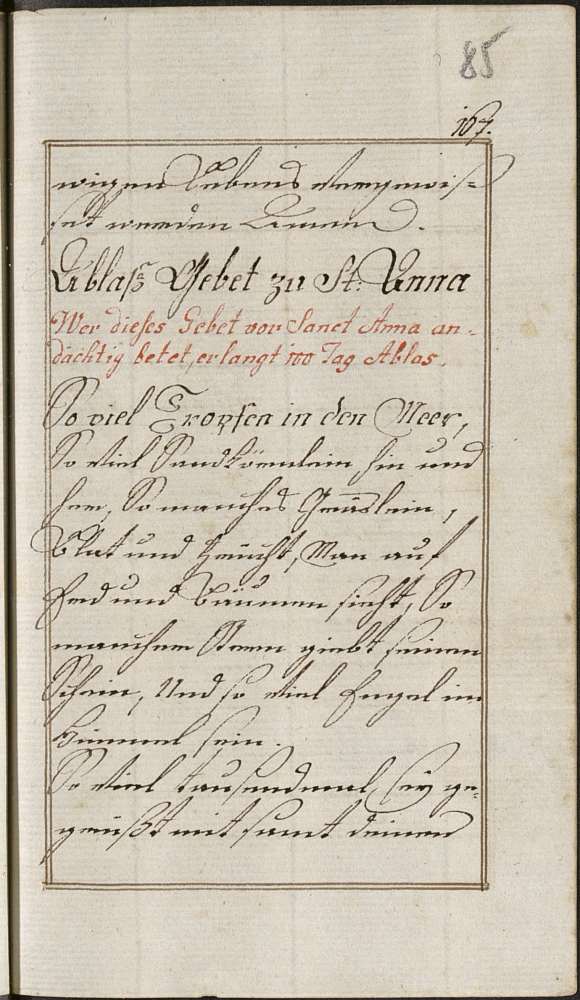 85
167.
wigen Lebens vergewis=
set werden Amen.
Ablaß Gebet zu St: Anna
Wer dieses Gebet vor Sanct Anna an=
dächtig betet, erlangt 100 Tag Ablas.
So viel Tropfen in den Meer,
So viel Sandkörnlein hin und
her, So manches Gräslein,
Blat und Frucht, Man auf
Erd und Bäumen sieht, So
mancher Stern giebt seinen
Schein, Und so viel Engel im
Himmel sein.
So viel tausendmal sey ge=
grüßt mit samt deinen